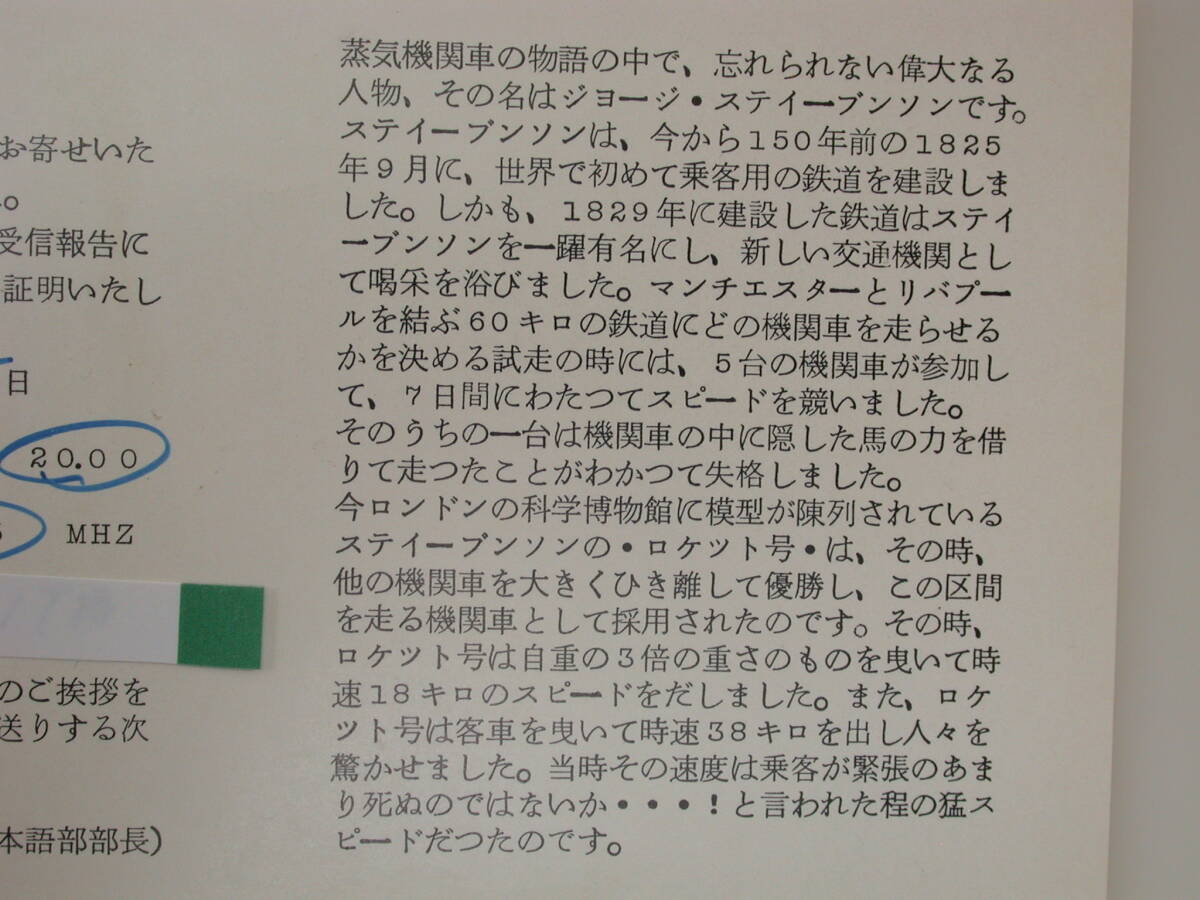 お寄せいた
。
受信報告に
証明いたし
日
20.00
MHZ
のご挨拶を
送りする次
本語部部長)
蒸気機関車の物語の中で、忘れられない偉大なる
人物、その名はジヨージ・ステイーブンソンです。
ステイーブンソンは、今から150年前の1825
年9月に、世界で初めて乗客用の鉄道を建設しま
した。しかも、1829年に建設した鉄道はステイ
ーブンソンを一躍有名にし、新しい交通機関とし
て喝采を浴びました。マンチエスターとリバプー
ルを結ぶ60キロの鉄道にどの機関車を走らせる
かを決める試走の時には、5台の機関車が参加し
て、7日間にわたつてスピードを競いました。
そのうちの一台は機関車の中に隠した馬の力を借
りて走つたことがわかつて失格しました。
今ロンドンの科学博物館に模型が陳列されている
ステイーブンソンの・ロケツト号・は、その時、
他の機関車を大きくひき離して優勝し、この区間
を走る機関車として採用されたのです。その時、
ロケツト号は自重の3倍の重さのものを曳いて時
速18キロのスピードをだしました。また、ロケ
ツト号は客車を曳いて時速38キロを出し人々を
驚かせました。当時その速度は乗客が緊張のあま
り死ぬのではないか・・・!と言われた程の猛ス
ピードだつたのです。